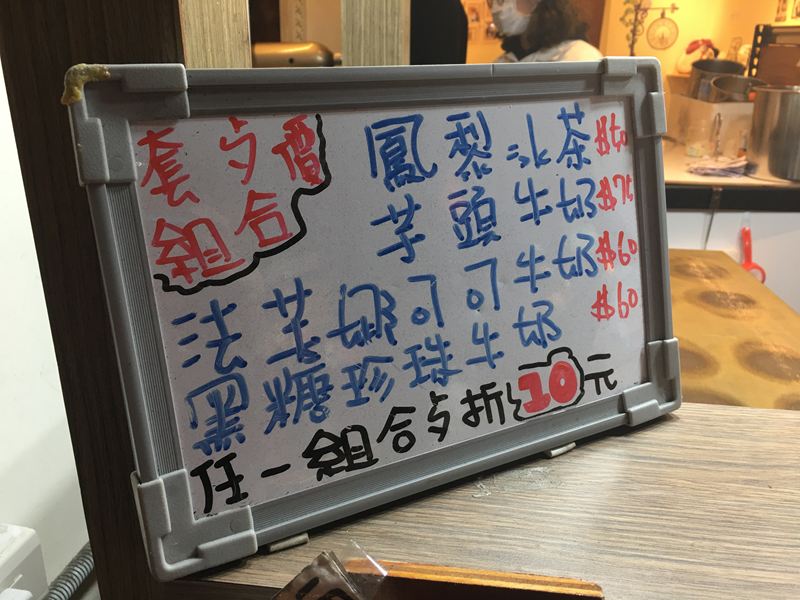 套歺價
組合
鳳黎冰茶
芋頭牛奶 $75
法芙娜可可牛奶 $60
黑糖珍珠牛奶 $60
任一組合歺折10元